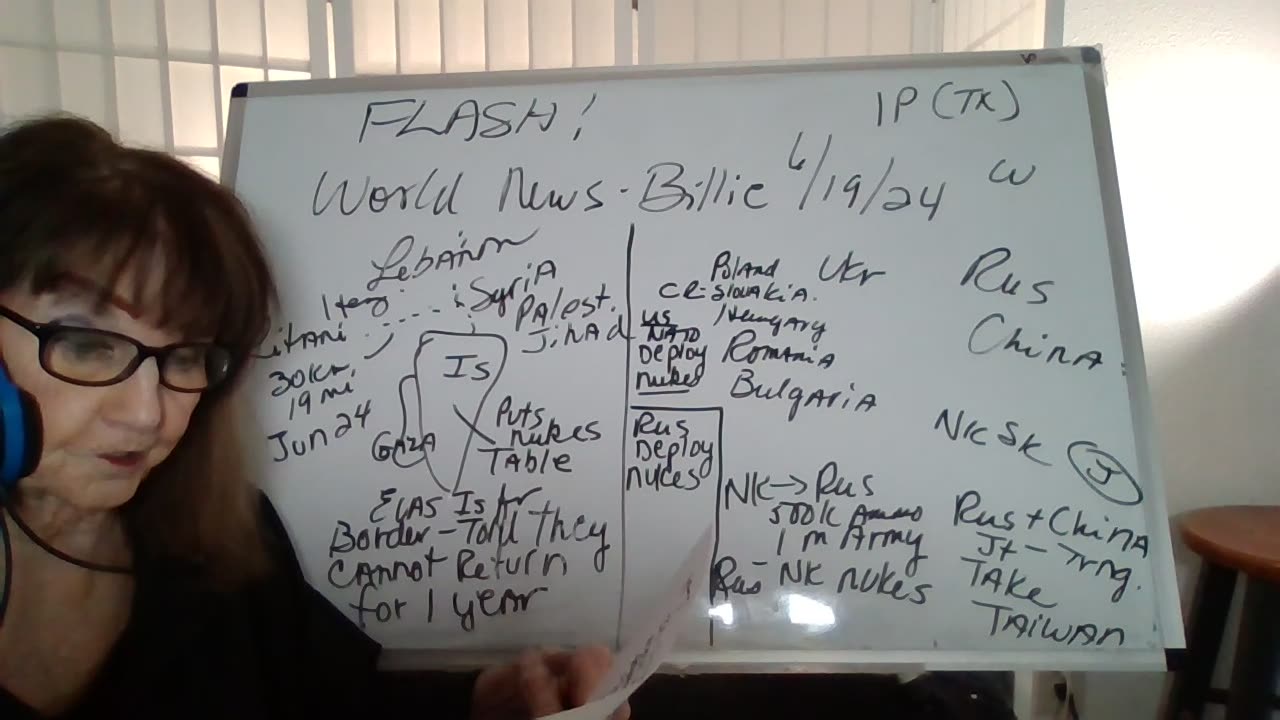 FLASH!
1P (TK)
World News - Billie 6/19/24 W
Lebanon
Syria
Palest.
Jihad
Litani
30km,
19 mi
Jun 24
Is
GAZA
Puts
nukes
TABLE
Is
Border - Told they
cannot Return
for 1 year
Poland
Slovakia.
Hungary
Romania
Bulgaria
Ukr
US
NATO
Deploy
nukes
Rus
Deploy
nukes
NK → Rus
500K Ammo
1 m Army
Rus - NK nukes
Rus
China
NK SK J
Rus + China
Jt - Trng.
TAKE
TAIWAN